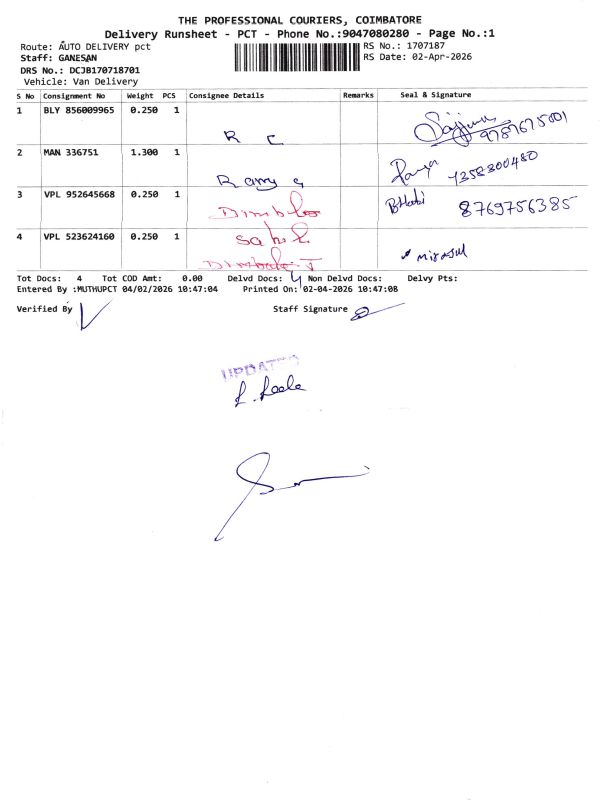 THE PROFESSIONAL COURIERS, COIMBATORE
Delivery Runsheet - PCT - Phone No.:9047080280 - Page No.:1
Route: AUTO DELIVERY pct
RS No.: 1707187
Staff: GANESAN
RS Date: 02-Apr-2026
DRS No.: DCJB170718701
Vehicle: Van Delivery
S No Consignment No Weight PCS Consignee Details Remarks Seal & Signature
1 BLY 856009965 0.250 1
R C
2 MAN 336751 1.300 1
7358300480
3 VPL 952645668 0.250 1
8769756385
4 VPL 523624160 0.250 1
Tot Docs: 4 Tot COD Amt: 0.00 Delvd Docs: 4 Non Delvd Docs: Delvy Pts:
Entered By :MUTHUPCT 04/02/2026 10:47:04 Printed On: 02-04-2026 10:47:08
Verified By Staff Signature
UPDATED